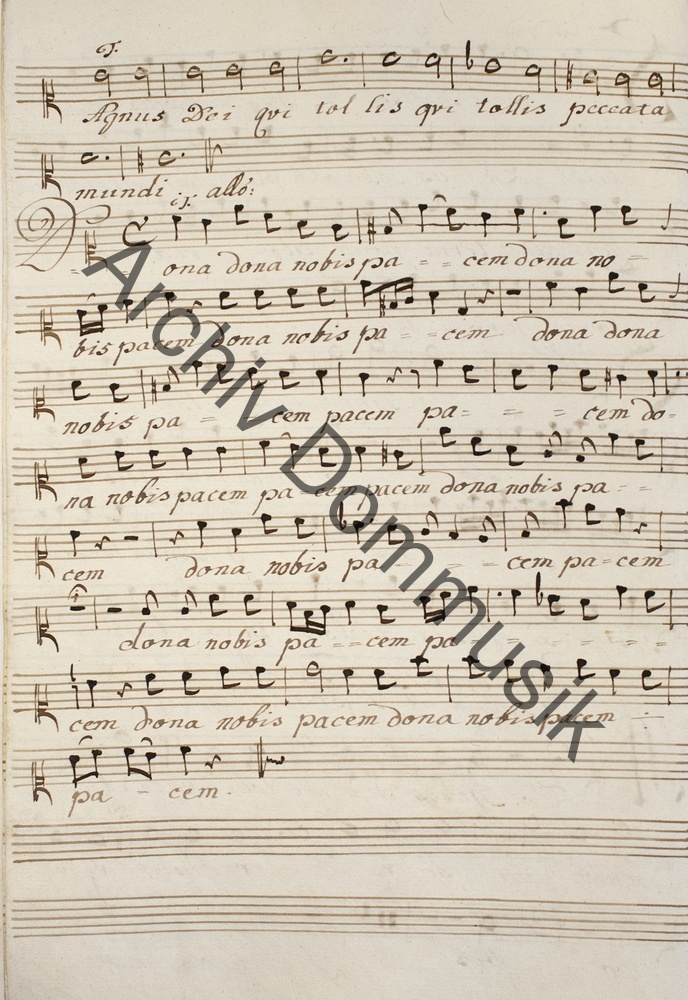 T.
Agnus Dei qvi tol lis qvi tollis peccata
mundi allo:
Dona dona nobis pa - - cem dona no -
bis pacem dona nobis pa - - cem dona dona
nobis pa - cem pacem pa - - - cem do-
na nobis pacem pa-cem pacem dona nobis pa - -
cem dona nobis pa - - - cem pa-cem
dona nobis pa - - cem pa - - - - -
cem dona nobis pacem dona nobis pacem -
pa - cem.
Archiv Dommusik